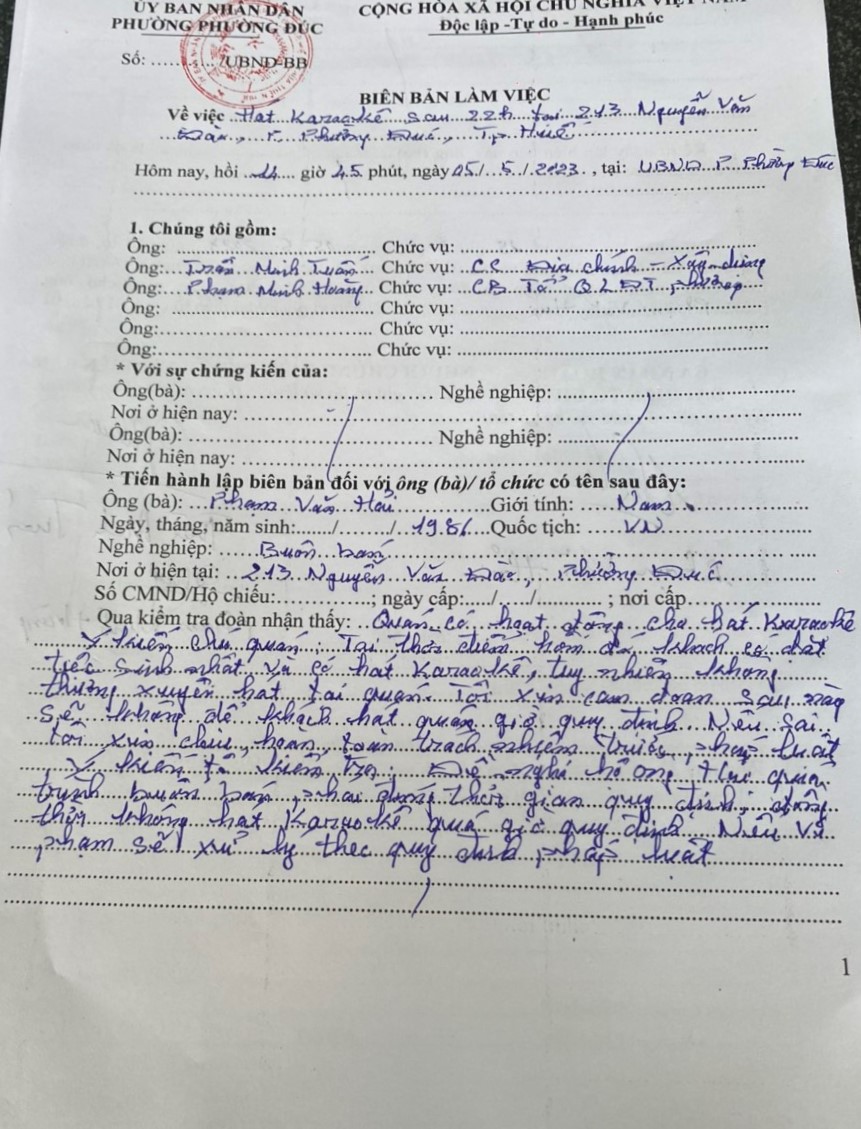 ỦY BAN NHÂN DÂN
PHƯỜNG PHƯỜNG ĐÚC
CỘNG HÒA XÃ HỘI CHỦ NGHĨA VIỆT NAM
Độc lập -Tự do - Hạnh phúc
Số: ........../UBND-BB
BIÊN BẢN LÀM VIỆC
Về việc Hát Karaokê sau 22h tại 213 Nguyễn Văn
Đào, P. Phường Đúc, Tp Huế
Hôm nay, hồi 14 giờ 45 phút, ngày 05/5/2023, tại: UBND P. Phường Đúc
1. Chúng tôi gồm:
Ông: ........ Chức vụ: ........
Ông: Trần Minh Tuấn Chức vụ: CC Địa chính - Xây dựng
Ông: Phạm Minh Hoàng Chức vụ: CB Tổ QLĐT phường
Ông: ........ Chức vụ: ........
Ông: ........ Chức vụ: ........
Ông: ........ Chức vụ: ........
* Với sự chứng kiến của:
Ông(bà): ........ Nghề nghiệp: ........
Nơi ở hiện nay: ........
Ông(bà): ........ Nghề nghiệp: ........
Nơi ở hiện nay: ........
* Tiến hành lập biên bản đối với ông (bà)/ tổ chức có tên sau đây:
Ông (bà): Phạm Văn Giới tính: Nam
Ngày, tháng, năm sinh:....../....../1986 Quốc tịch: VN
Nghề nghiệp: Buôn bán
Nơi ở hiện tại: 213 Nguyễn Văn Đào, Phường Đúc
Số CMND/Hộ chiếu:............; ngày cấp:...../...../..........; nơi cấp............
Qua kiểm tra đoàn nhận thấy: Quán có hoạt động cho hát Karaokê
Ý kiến chủ quán: Tại thời điểm hôm đó khách có đặt
tiệc sinh nhật và có hát Karaokê, tuy nhiên không
thường xuyên hát tại quán. Tôi xin cam đoan sau này
sẽ không để khách hát quá giờ quy định. Nếu sai
tôi xin chịu hoàn toàn trách nhiệm trước pháp luật
Ý kiến tổ kiểm tra: Đề nghị hộ ông quá
trình buôn bán phải đúng thời gian quy định, đồng
thời không hát Karaokê quá giờ quy định. Nếu vi
phạm sẽ xử lý theo quy định pháp luật
1